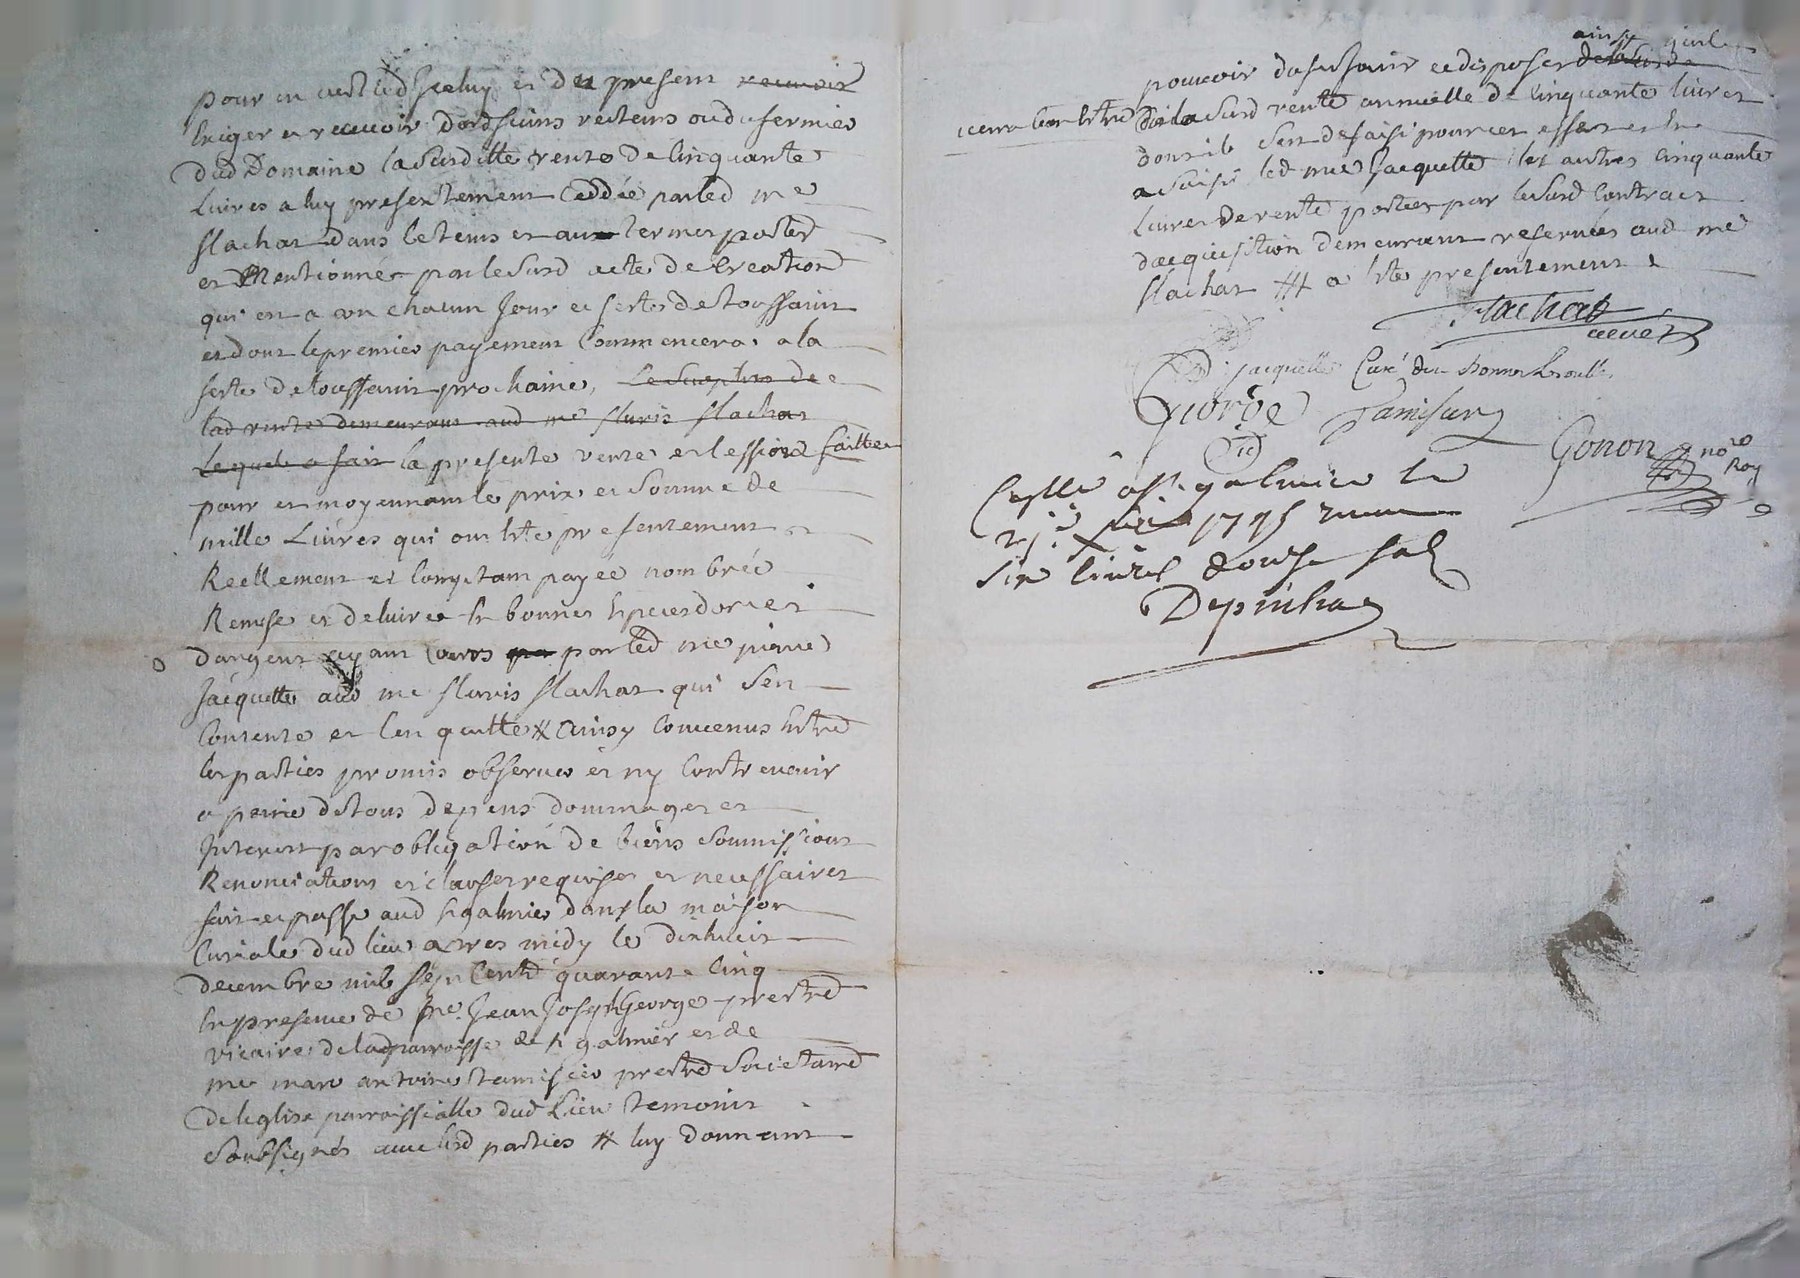 pour en vertu d'Iceluy et du present recevoir
Exiger et recevoir dord sieurs recteurs ou du fermier
dud Domaine la Susditte rente de Cinquante
Livres a luy presentement Ceddée par led me
flachat dans le tems et aux termes portés
et Mentionnés par le Susd acte de Creation
qui est a un chacun Jour et feste de toussaint
et dont le premier payement Commencera a la
feste de toussaint prochaine, Le Surplus de
lad rente demeurant aud me fleuris flachat
Lequel a fait la presente vente et Cession faitte
pour et moyennant le prix et Somme de
mille Livres qui ont Eté presentement
Reellement et Comptant payée nombrée
Remise et delivrée En bonnes Especes dor et
dargent ayant Cours par led me pierre
Jacquette aud me fleuris flachat qui Sen
Contente et Len quitte # Ainsy Convenus Entre
les parties promis observer et ny Contrevenir
a peine de tous depens dommages et
Interest par obligation de biens Soumissions
Renonciations et clauses requises et necessaires
fait et passé aud St galmier dans la maison
Curiale dud lieu apres midy le dixhuit
decembre mil Sept Cent quarante Cinq
En presence de Me Jean Joseph George prestre
vicaire de lad parroisse de St galmier et de
me marc antoine tamisier prestre Societaire
de leglise parroissialle dud Lieu temoins
Soubsignés avec lesd parties # luy donnant
ainsy quil
pouvoir dese saisir et disposer de la Susd
verra bon Estre de la Susd rente annuelle de Cinquante livres
dont il Sen desaisi pour cet effet et En
a saisi led me Jacquette les autres Cinquante
Livres de rente portées par le Susd Contract
dacquisition demeurant reservées aud me
flachat # a Eté presentement
Flachat
Jacquette Curé de
George Tamisier
Gonon no re Roy
Cllé a St galmier le
1745
Six livres douse sols
Depinhac